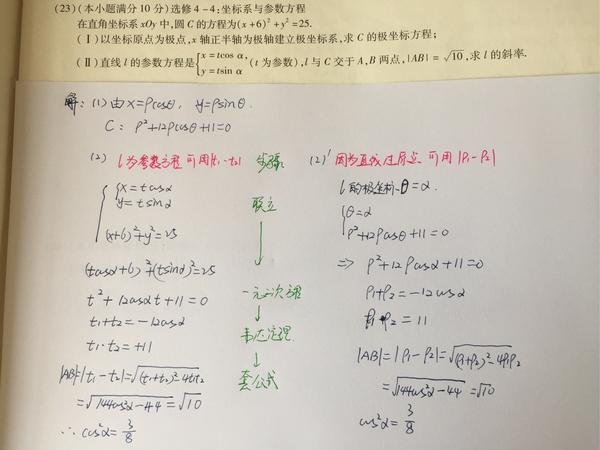 (23)(本小题满分10分)选修4-4:坐标系与参数方程
在直角坐标系xOy中,圆C的方程为(x+6)²+y²=25.
(Ⅰ)以坐标原点为极点,x轴正半轴为极轴建立极坐标系,求C的极坐标方程;
(Ⅱ)直线l的参数方程是{x=tcos α, y=tsin α (t为参数),l与C交于A,B两点,|AB|=√10,求l的斜率.
解: (1) 由x=ρcosθ, y=ρsinθ.
C: ρ²+12ρcosθ+11=0
(2) l为参数方程 可用|t₁-t₂|
{x=tcosα
y=tsinα
(x+6)²+y²=25
(tcosα+6)²+(tsinα)²=25
t²+12cosαt+11=0
t₁+t₂=-12cosα
t₁·t₂=+11
|AB|=|t₁-t₂|=√(t₁+t₂)²-4t₁t₂
=√144cos²α-44=√10
∴cos²α=3/8
步骤
联立
↓
一元二次方程
↓
韦达定理
↓
套公式
(2)' 因为直线过原点 可用|ρ₁-ρ₂|
l的极坐标θ=α.
{θ=α
ρ²+12ρcosθ+11=0
⇒ ρ²+12ρcosα+11=0
ρ₁+ρ₂=-12cosα
ρ₁·ρ₂=11
|AB|=|ρ₁-ρ₂|=√(ρ₁+ρ₂)²-4ρ₁ρ₂
=√144cos²α-44=√10
cos²α=3/8